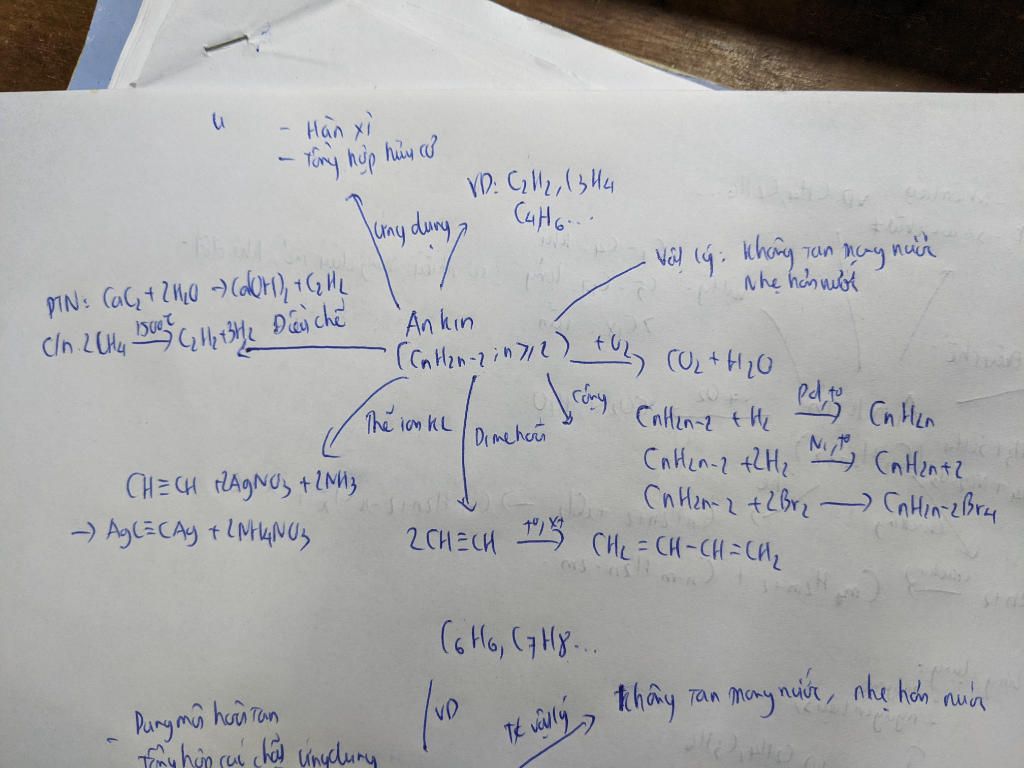 - Hàn xì
- Tổng hợp hữu cơ
VD: C2H2, C3H4
C4H6...
ứng dụng
Vật lý: không tan trong nước
nhẹ hơn nước
PTN: CaC2 + 2H2O → Ca(OH)2 + C2H2
C/n. 2CH4 1500°C → C2H2 + 3H2
Điều chế
Ankin
(CnH2n-2; n≥2)
+O2 → CO2 + H2O
Thế ion KL
Dime hoá
cộng
CnH2n-2 + H2 Pd, to → CnH2n
CnH2n-2 + 2H2 Ni, to → CnH2n+2
CnH2n-2 + 2Br2 → CnH2n-2Br4
CH≡CH + 2AgNO3 + 2NH3
→ AgC≡CAg + 2NH4NO3
2CH≡CH to, xt → CH2=CH-CH=CH2
C6H6, C7H8...
VD
TC vật lý
Không tan trong nước, nhẹ hơn nước
- Dung môi hoà tan
Tổng hợp các chất
ứng dụng